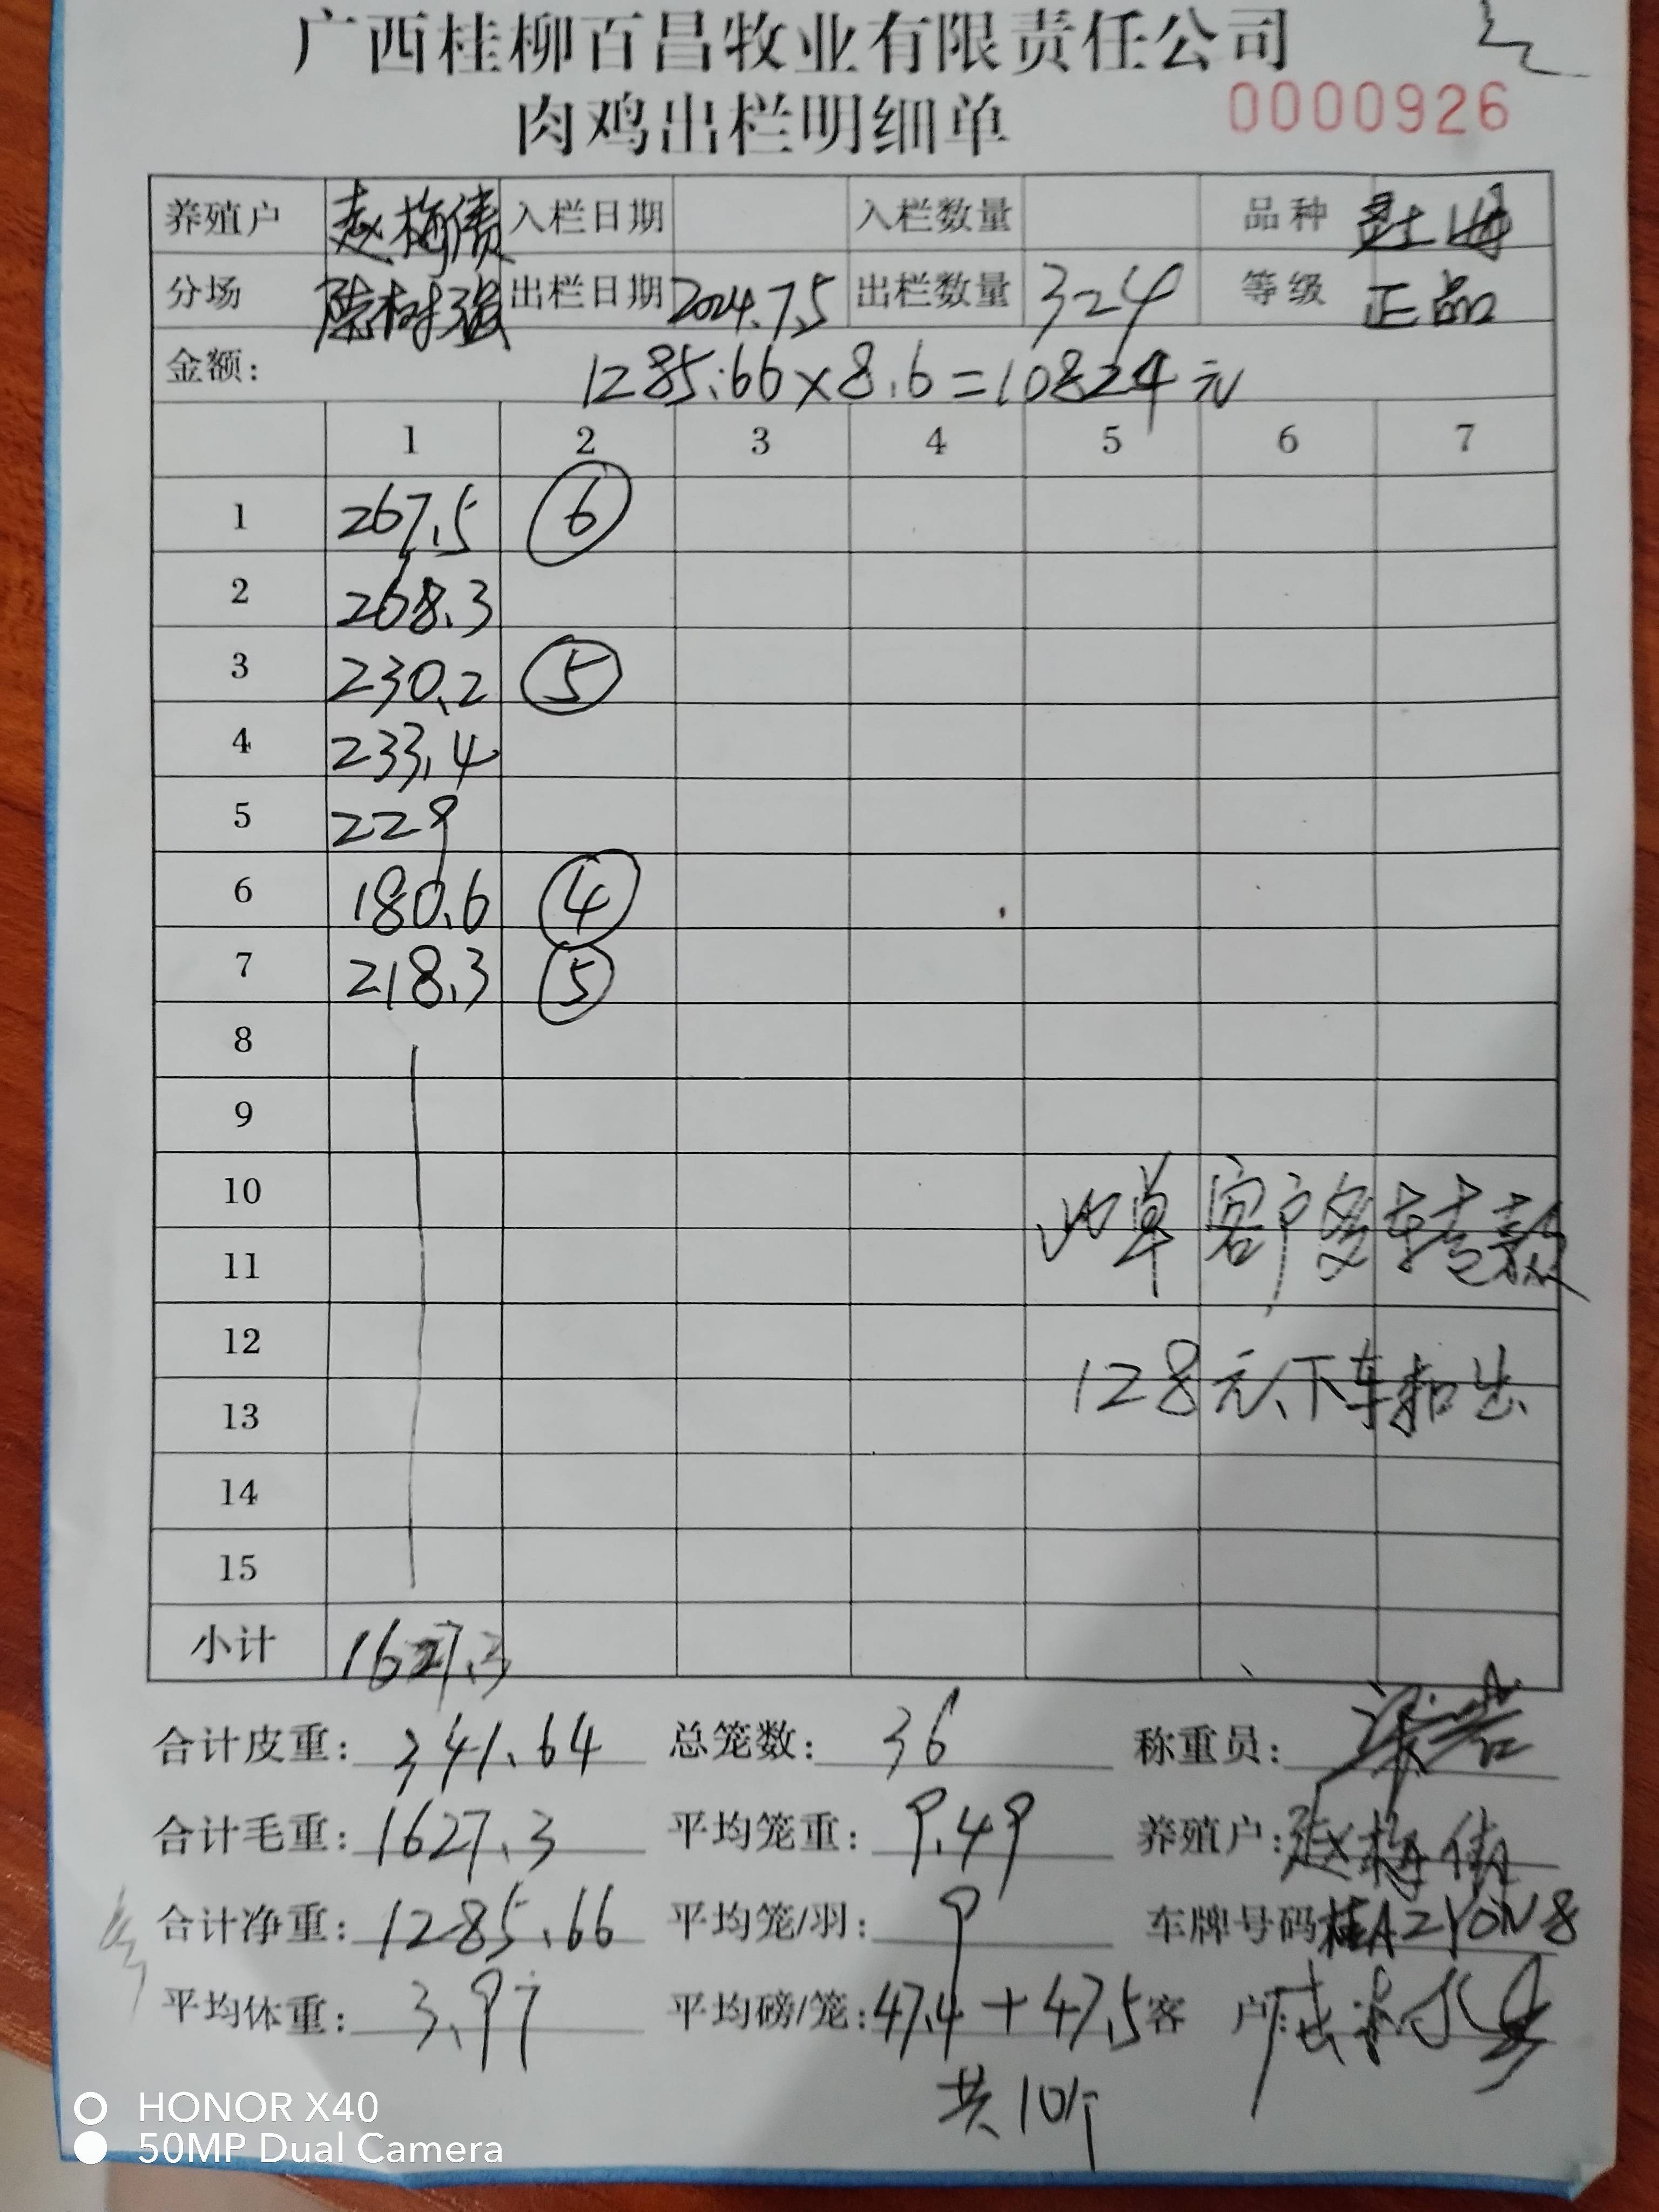 广西桂柳百昌牧业有限责任公司
肉鸡出栏明细单 0000926
养殖户 赵梅倩 入栏日期 入栏数量 品种
分场 陈树强 出栏日期 2024.7.5 出栏数量 324 等级 正品
金额: 1285.66×8.6=10824元
1 2 3 4 5 6 7
1 267.5 ⑥
2 268.3
3 230.2 ⑤
4 233.4
5 229
6 180.6 ④
7 218.3 ⑤
8
9
10
11 此单客户多转款
12
13 128元、下车扣出
14
15
小计 1627.3
合计皮重: 341.64 总笼数: 36 称重员:
合计毛重: 1627.3 平均笼重: 9.49 养殖户: 赵梅倩
合计净重: 1285.66 平均笼/羽: 9 车牌号码 桂AZY0N8
平均体重: 3.97 平均磅/笼: 47.4+47.5 客 户:
共10个
HONOR X40
50MP Dual Camera